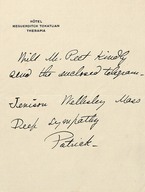 HÔTEL
MEGUERDITCH TOKATLIAN
THERAPIA
Will Mr. Peet kindly
send the enclosed telegram-
Jenison Wellesley Mass
Deep sympathy
Patrick-